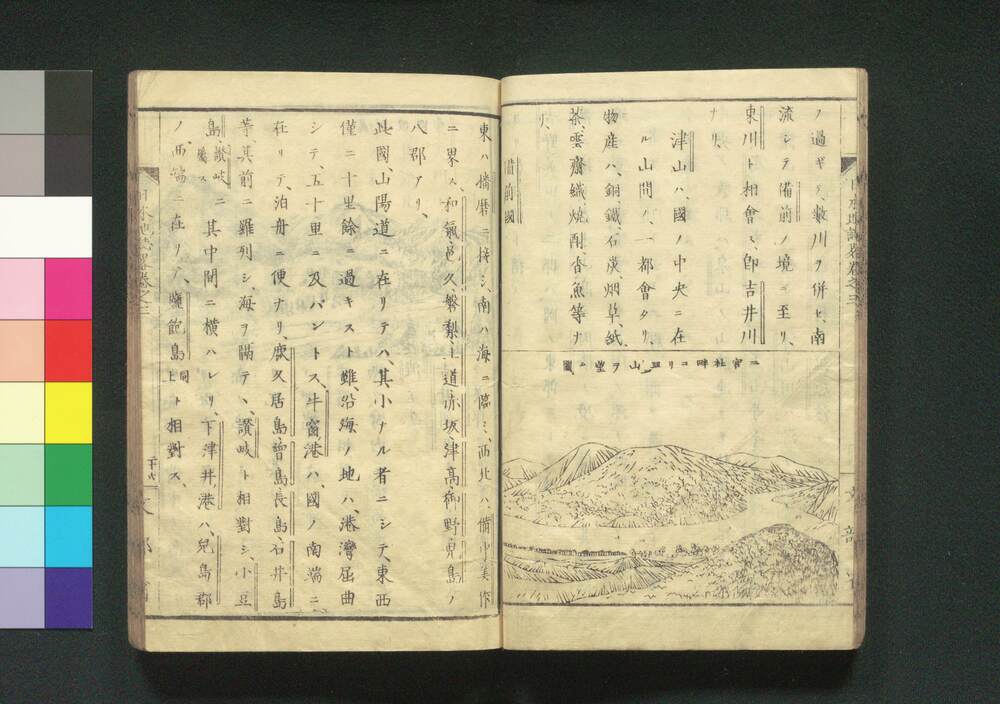 ノ過ギテ、數川ヲ併セ、南
流シテ備前ノ境ニ至リ、
東川ト相會ス、卽吉井川
ナリ
津山ハ、國ノ中央ニ在
ル山間ノ、一都會タリ、
物産ハ、銅、鐵、石炭、烟草、紙、
茶、雲齋織、燒酎、香魚等ナ
リ、
備前國
東ハ播磨ニ接シ、南ハ海ニ臨ミ、西北ハ備中美作
ニ界ス、和氣、邑久、磐梨、上道、赤坂、津高、御野、兒島ノ
八郡アリ、
此國、山陽道ニ在リテハ、其小ナル者ニシテ、東西
僅ニ十里餘ニ過キスト雖、沿海ノ地ハ、港灣屈曲
シテ、五十里ニ及バントス、牛窗港ハ、國ノ南端ニ
在リテ、泊舟ニ便ナリ、鹿久居島、曾島、長島、石井島
等、其前ニ羅列シ、海ヲ隔テヽ、讃岐ト相對シ、小豆
島、讃岐ニ屬ス 其中間ニ橫ハレリ、下津井港ハ、兒島郡
ノ、西端ニ在リテ、鹽飽島 同上 ト相對ス、
日本地誌略卷之三